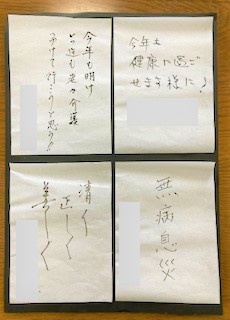 今年も
健康に過ご
せます様に♪
今年も明け
どこ迄も老々介護
けて行こうと思う
無病息災
清く
正しく
美しく